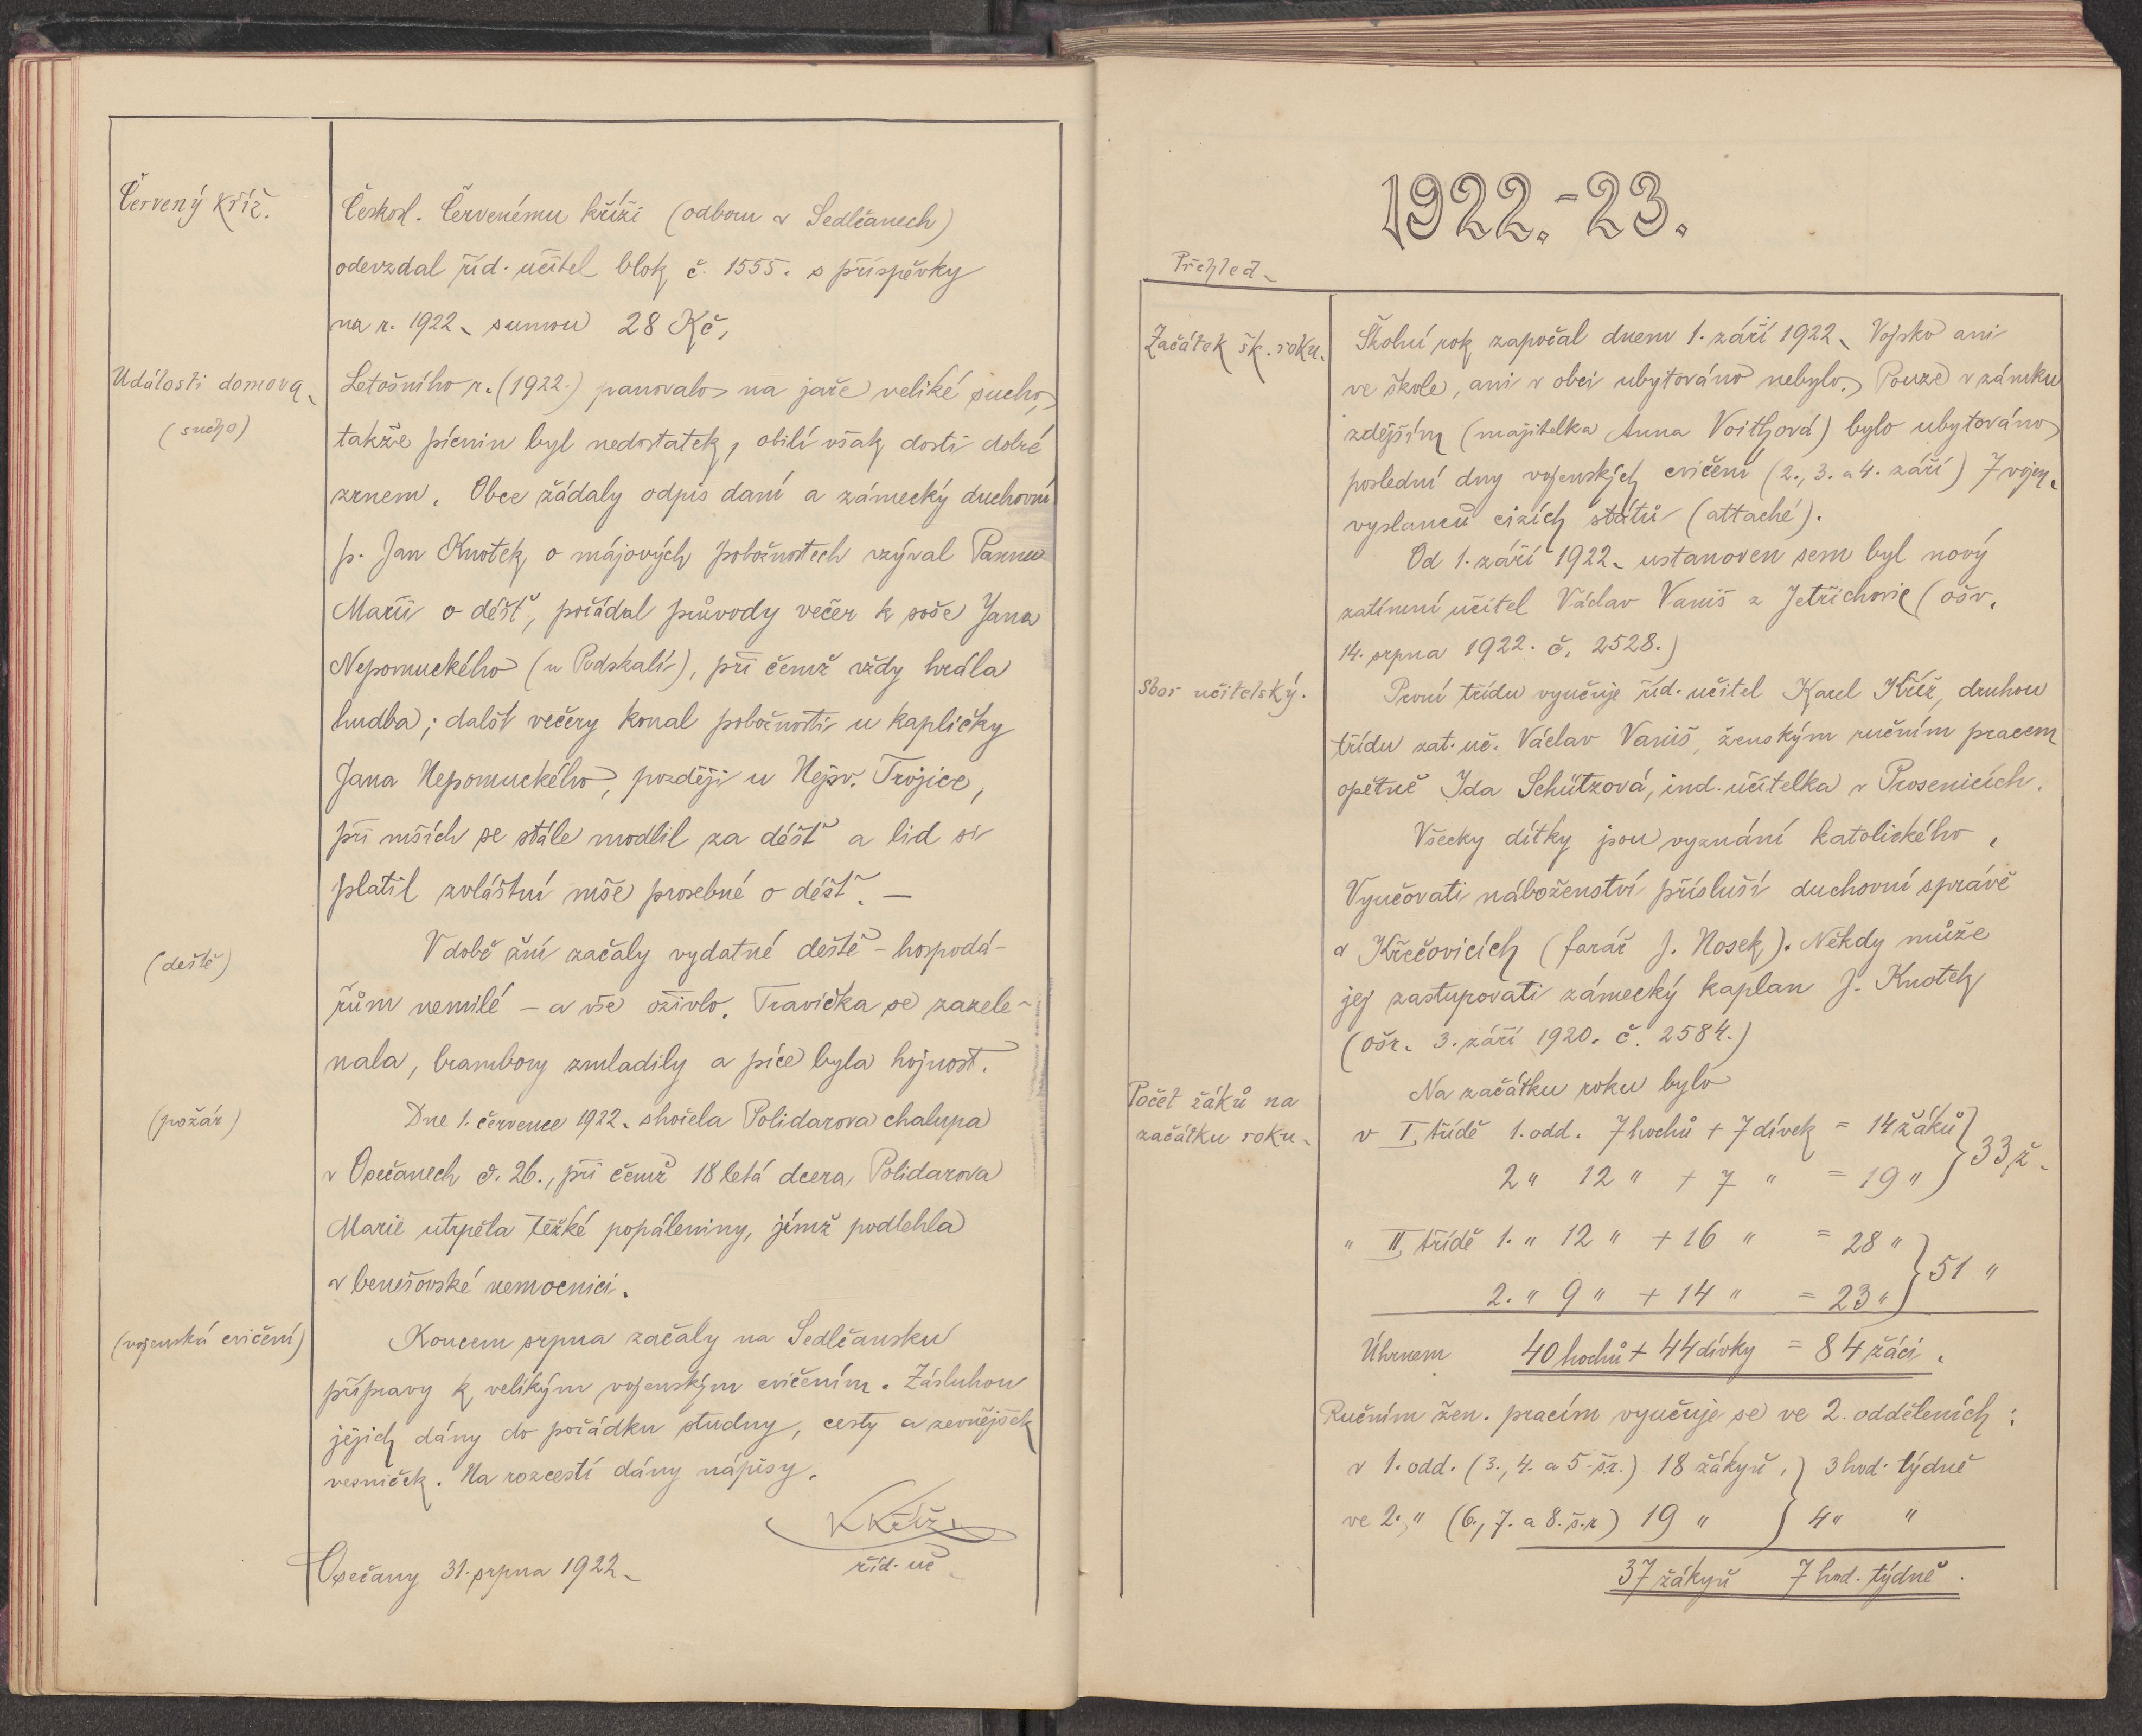 Červený kříž.
Českosl. Červenému kříži (odboru v Sedlčanech)
odevzdal říd. učitel blok č. 1555. s příspěvky
na r. 1922. sumou 28 Kč.
Události domova.
(sucho)
Letošního r. (1922.) panovalo na jaře veliké sucho,
takže pícnin byl nedostatek, obilí však dosti dobré
zrnem. Obce žádaly odpis daní a zámecký duchovní
p. Jan Knotek o májových pobožnostech vzýval Pannu
Marii o déšť, pořádal průvody večer k soše Jana
Nepomuckého (u Podskalí), při čemž vždy hrála
hudba; dalšt večery konal pobožnosti u kapličky
Jana Nepomuckého, později u Nejsv. Trojice,
při mších se stále modlil za déšť a lid si
platil zvláštní mše prosebné o déšť. —
(deště)
V době žní začaly vydatné deště – hospodá-
řům nemilé – a vše oživlo. Travička se zazele-
nala, brambory zmladily a píce byla hojnost.
(požár)
Dne 1. července 1922. shořela Polidarova chalupa
v Osečanech č. 26., při čemž 18letá dcera Polidarova
Marie utrpěla těžké popáleniny, jímž podlehla
v benešovské nemocnici.
(vojenská cvičení)
Koncem srpna začaly na Sedlčansku
přípravy k velikým vojenským cvičením. Zásluhou
jejich dány do pořádku studny, cesty a zevnějšek
vesniček. Na rozcestí dány nápisy.
KKříž
říd. uč.
Osečany 31. srpna 1922.
1922.-23.
Přehled.
Začátek šk. roku.
Školní rok započal dnem 1. září 1922. Vojsko ani
ve škole, ani v obci ubytováno nebylo. Pouze v zámku
zdejším (majitelka Anna Voithová) bylo ubytováno
poslední dny vojenských cvičení (2., 3. a 4. září) 7 vojen.
vyslanců cizích států (attaché).
Od 1. září 1922. ustanoven sem byl nový
zatímní učitel Václav Vaniš z Jetřichovic (ošv.
14. srpna 1922. č. 2528.)
Sbor učitelský.
První třídu vyučuje říd. učitel Karel Kříž, druhou
třídu zat. uč. Václav Vaniš, ženským ručním pracem
opětně Ida Schützová, ind. učitelka v Prosenicích.
Všecky dítky jsou vyznání katolického.
Vyučovati náboženství přísluší duchovní správě
v Křečovicích (farář J. Nosek). Někdy může
jej zastupovati zámecký kaplan J. Knotek
(ošr. 3. září 1920. č. 2584.)
Počet žáků na
začátku roku.
Na začátku roku bylo
v I. třídě 1. odd. 7 hochů + 7 dívek = 14 žáků } 33 ž.
2 " 12 " + 7 " = 19 "
" II. třídě 1. " 12 " + 16 " = 28 " } 51 "
2. " 9 " + 14 " = 23 "
Úhrnem 40 hochů + 44 dívky = 84 žáci.
Ručním žen. pracím vyučuje se ve 2. odděleních:
v 1. odd. (3., 4. a 5. š.r.) 18 žákyň, } 3 hod. týdně
ve 2. " (6., 7. a 8. š.r) 19 " } 4 " "
37 žákyň 7 hod. týdně.